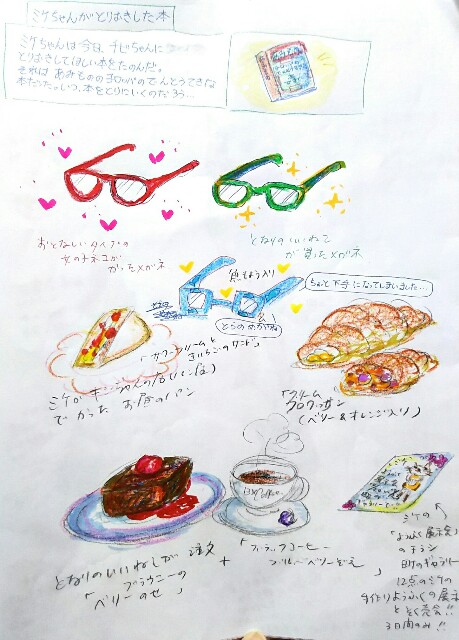 ミケちゃんがとりよせした本
ミケちゃんは今日、チビちゃんに
とりよせしてほしい本をたのんだ。
それは あみものの ヨーロッパの でんとうてきな
本だった。いつ、本をとりにいくのだろう…
おとなしいタイプの
女の子ネコが
かったメガネ
となりのいいねこ
が 買ったメガネ
魚もよう入り
とらのめがね
ちょっと下手になってしまいました…
「サワークリームと
きいちごのサンド」
ミケが キンじゃんの
でかった お昼のパン
「クリーム
クロワッサン
(ベリー&オレンジ入り)
となりのいいねこが 注文
ブラウニーの
「ベリーのせ」
+
「ブラックコーヒー
ブルーベリーそえ」
ミケの「
ようふく展示会」
のチラシ
町のギャラリー
12点のミケの
手作りようふくの展示
とそく売会!!
3日間のみ!!